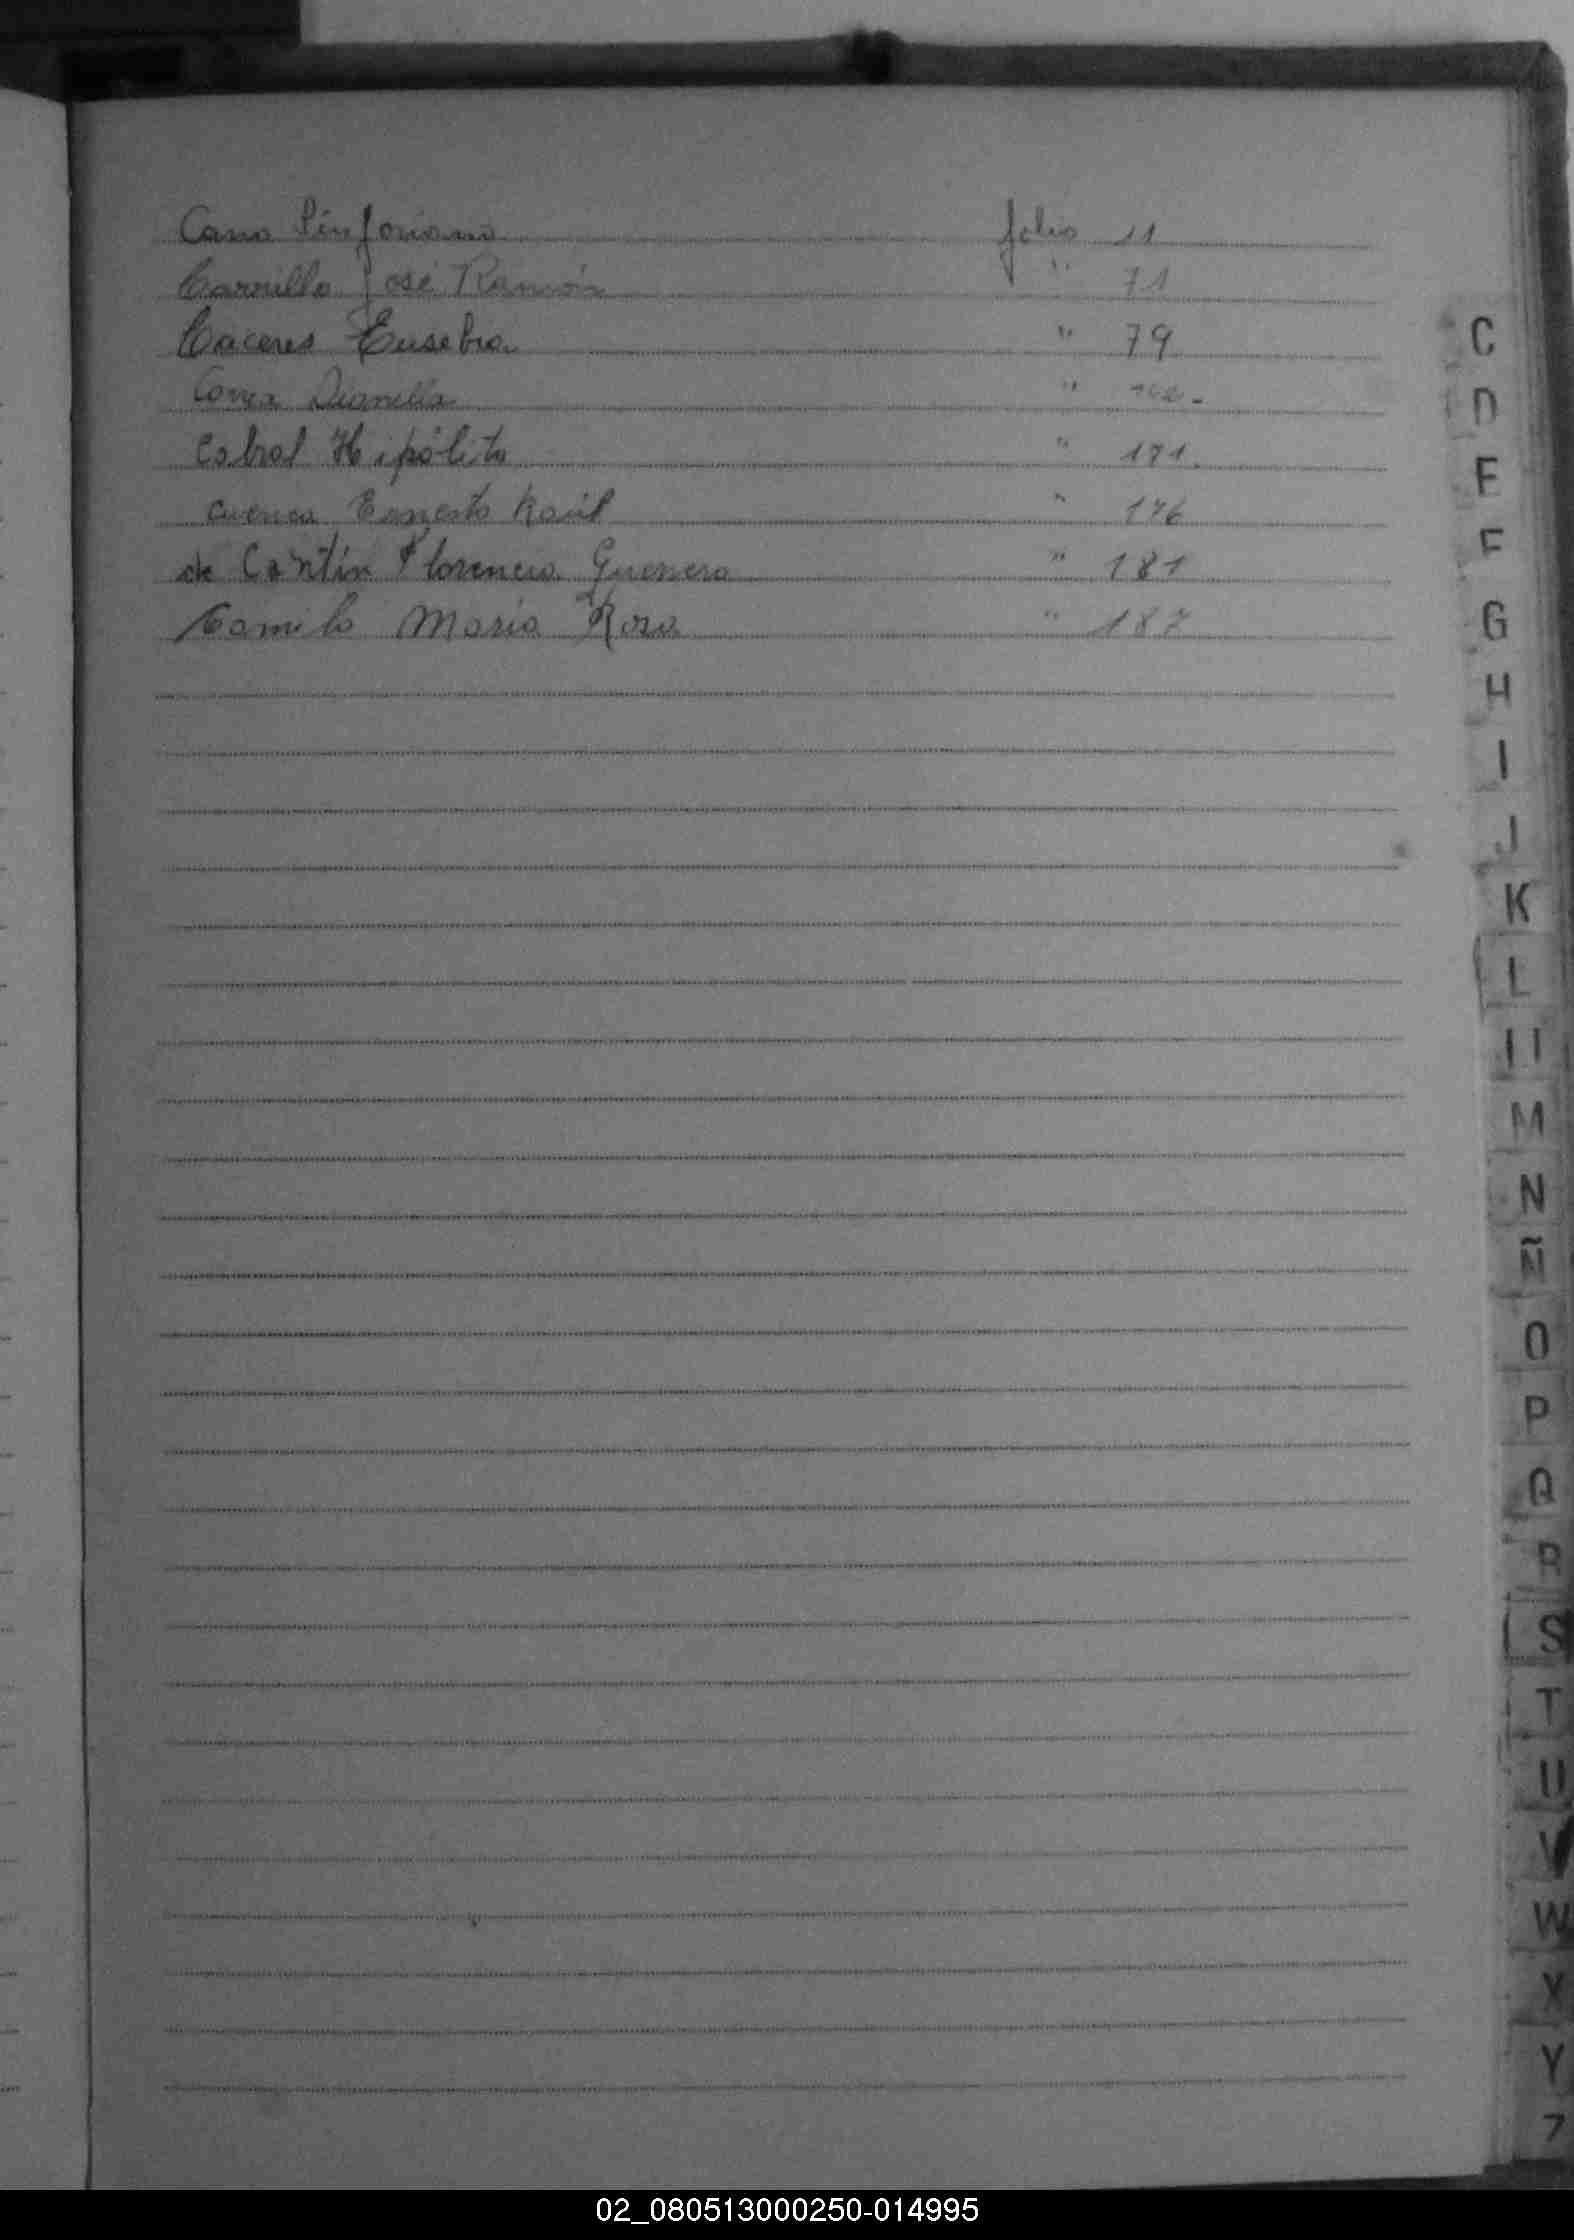 Cano Sinforiano folio 11
Carrillo José Ramón " 71
Caceres Eusebia " 79
Correa "
Cabral Hipólito " 171.
Cuenca Ernesto Raúl " 176
de Contín Florencia Guerrero " 181
Camilo Maria Rosa " 187
C
D
E
F
G
H
I
J
K
L
Ll
M
N
Ñ
O
P
Q
R
S
T
U
V
W
X
Y
Z
02_080513000250-014995